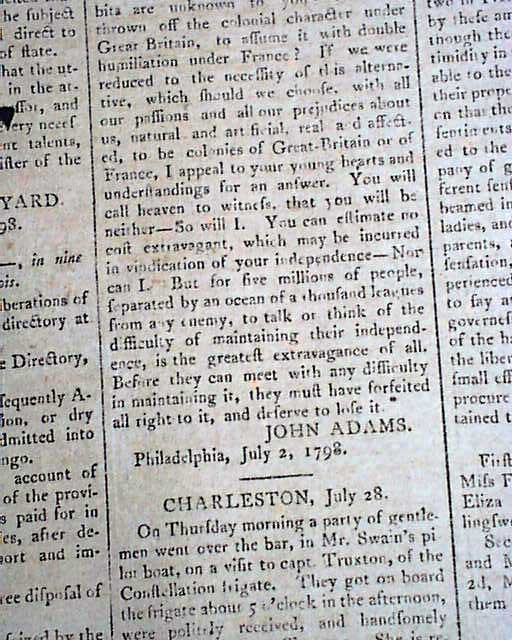 he subject
d direct to
of state.
hat the ut-
in the at-
and
every necef
nt talents,
ister of the
YARD.
98.
in nine
iberations of
directory at
e Directory,
sequently A-
ion, or dry
dmitted into
ngo.
account of
of the provi-
s paid for in
es, after de-
port and im-
ree disposal of
bits are unknown to
thrown off the colonial character under
Great Britain, to assume it with double
humiliation under France? If we were
reduced to the necessity of this alterna-
tive, which should we choose. with all
our passions and all our prejudices about
us, natural and artificial, real and affect-
ed, to be colonies of Great-Britain or of
France, I appeal to your young hearts and
understandings for an answer. You will
call heaven to witness, that you will be
neither—So will I. You can estimate no
cost extravagant, which may be incurred
in vindication of your independence—Nor
can I. But for five millions of people,
separated by an ocean of a thousand leagues
from any enemy, to talk or think of the
difficulty of maintaining their independ-
ence, is the greatest extravagance of all.
Before they can meet with any difficulty
in maintaining it, they must have forfeited
all right to it, and deserve to lose it."
JOHN ADAMS.
Philadelphia, July 2, 1798.
CHARLESTON, July 28.
On Thursday morning a party of gentle-
men went over the bar, in Mr. Swain's pi
lot boat, on a visit to capt. Truxton, of the
Constellation frigate. They got on board
the frigate about 5 o'clock in the afternoon,
were politely received, and handsomely
two in
by these am
though the
timidity in
able to the
their prope
on that the
sentiments
ed to the
pany of g
ferent sens
beamed in
ladies, and
parents, a
sensation,
perienced
to say a
governess
of the ha
the liber
small eff
procure
tained t
First
Miss F
Eliza
lingsw
Sec
and M
2d, M
them